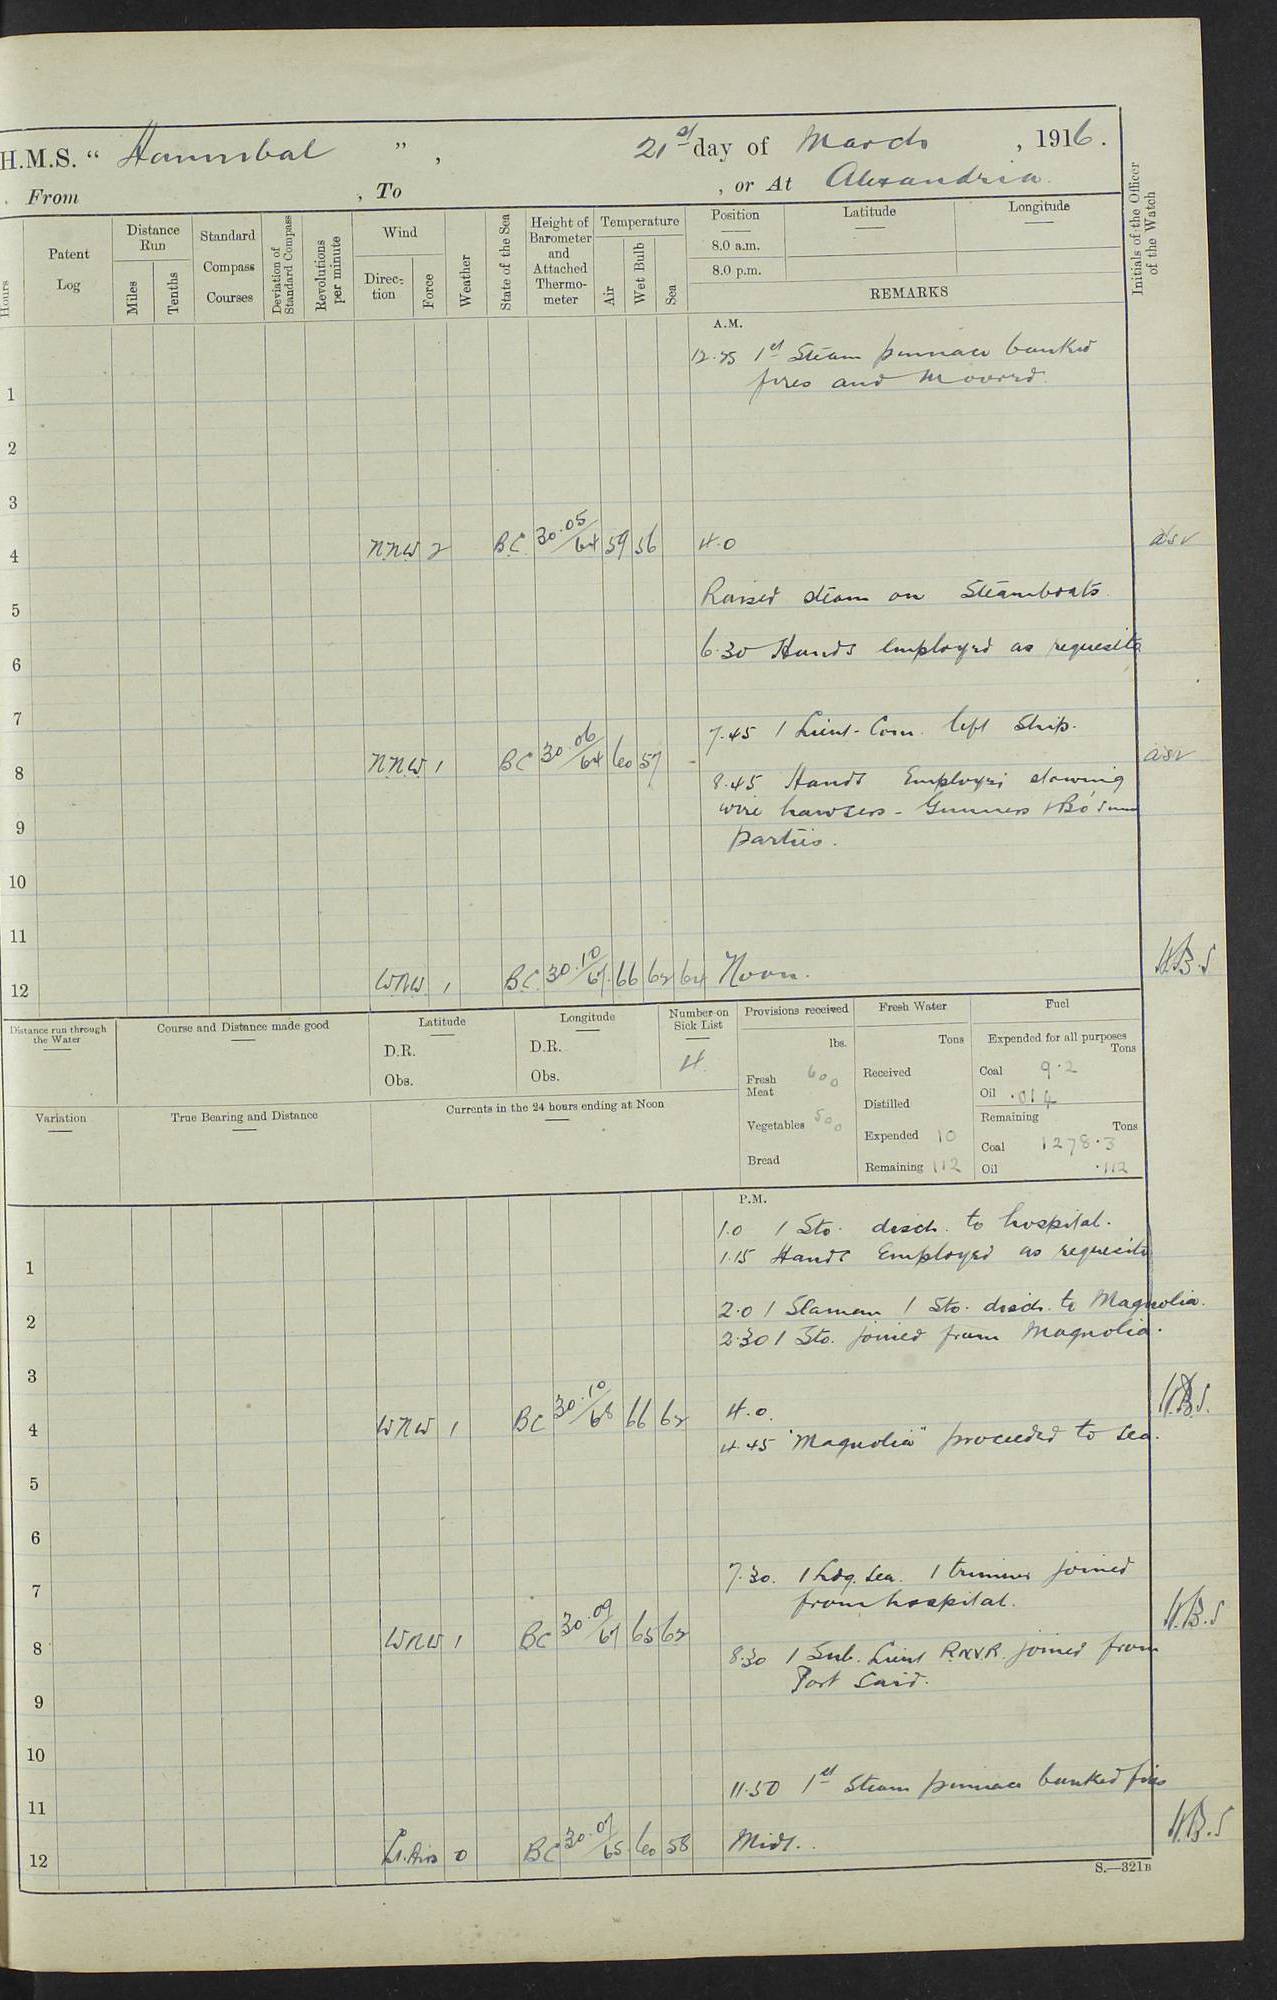 H.M.S. “ Hannibal ” , 21st day of March , 1916.
From , To , or At Alexandria.
Hours
Patent Log
Distance Run
Miles
Tenths
Standard Compass Courses
Deviation of Standard Compass
Revolutions per minute
Wind
Direction
Force
Weather
State of the Sea
Height of Barometer and Attached Thermometer
Temperature
Air
Wet Bulb
Sea
Position
8.0 a.m.
8.0 p.m.
Latitude
Longitude
REMARKS
Initials of the Officer of the Watch
A.M.
12.25 1st Steam pinnace banked
fires and moored.
1
2
3
4 NNW 2 BC 30.05/64 59 56 4.0 asv
5 Raised steam on Steamboats.
6 6.30 Hands employed as requisite
7
7.45 1 Lieut-Com. left Ship.
8 NNW 1 BC 30.06/64 60 57 - asv
8.45 Hands Employed stowing
9 wire hawsers - Gunners & Bo'suns
parties.
10
11
12 WNW 1 BC 30.10/67 66 62 64 Noon. H.B.S
Distance run through the Water
Course and Distance made good
Latitude
D.R.
Obs.
Longitude
D.R.
Obs.
Number on Sick List
4.
Provisions received
lbs.
Fresh Meat 600
Vegetables 500
Bread
Fresh Water
Tons
Received
Distilled
Expended 10
Remaining 112
Fuel
Expended for all purposes
Tons
Coal 9.2
Oil .014
Remaining
Tons
Coal 1278.3
Oil .112
Variation
True Bearing and Distance
Currents in the 24 hours ending at Noon
P.M.
1.0 1 Sto. disch. to hospital.
1 1.15 Hands Employed as requisite
2 2.0 1 Seaman 1 Sto. disch. to Magnolia.
2.30 1 Sto. joined from Magnolia.
3
4 WNW 1 BC 30.10/68 66 62 4.0. H.B.S.
4.45 "Magnolia" proceeded to sea.
5
6
7 7.30. 1 Ldg. Sea. 1 trimmer joined
from hospital.
8 WNW 1 BC 30.09/67 65 62 H.B.S
8.30 1 Sub. Lieut R.N.V.R. joined from
Port Said.
9
10
11 11.50 1st Steam pinnace banked fires
12 Lt. Airs 0 BC 30.07/65 60 58 Midt. H.B.S
S.—321B